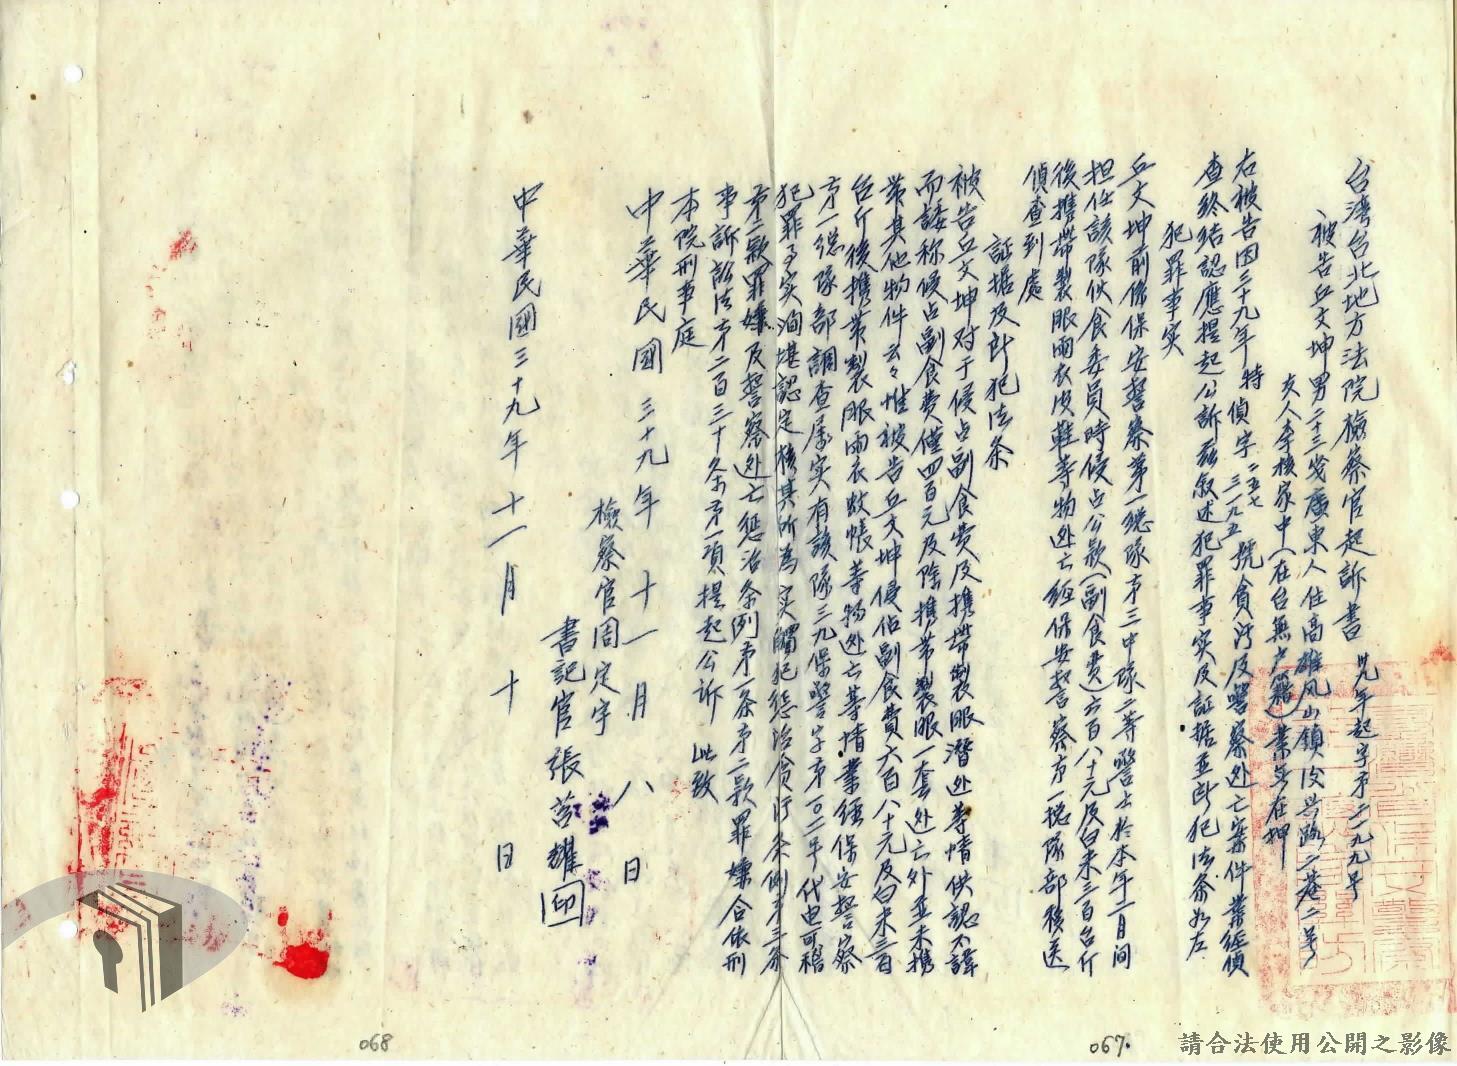 台湾台北地方法院檢察官起訴書 卅九年起字第二一九九号
被告丘文坤男二十三岁廣東人住高雄凤山鎮 路二巷二号
友人李 家中(在台無户籍)業 在押
右被告因三十九年特偵字二五七 三一九五號貪污及警察处亡案件業經偵
查終結認應提起公訴茲叙述犯罪事实及証据並所犯法条如左
犯罪事实
丘文坤前係保安警察第一總隊才三中隊二等警士於本年二月間
担任該隊伙食委員時侵占公款(副食費)六百八十元及白米三百台斤
後携帶製服雨衣皮鞋等物处亡經保安警察才一總隊部移送
偵查到處
証据及所犯法条
被告丘文坤对于侵占副食費及携帶製服潛处等情供認不諱
而諉称侵占副食費僅四百元及除携帶製服一套处亡外並未携
帶其他物件云々惟被告丘文坤侵佔副食費六百八十元及白米三百
台斤後携帶製服雨衣蚊帳等物处亡等情業經保安警察
才一總隊部調查屬实有該隊三九保警字才一〇二二号代电可稽
犯罪事实洵堪認定核其所為实觸犯惩治貪污条例才三条
才二款罪嫌及警察处亡惩治条例才一条才二款罪嫌合依刑
事訴訟法才二百三十条才一項提起公訴 此致
本院刑事庭
中華民國三十九年十一月八日
檢察官周定宇
書記官張 耀 印
中華民國三十九年十一月十日
068
067.
請合法使用公開之影像